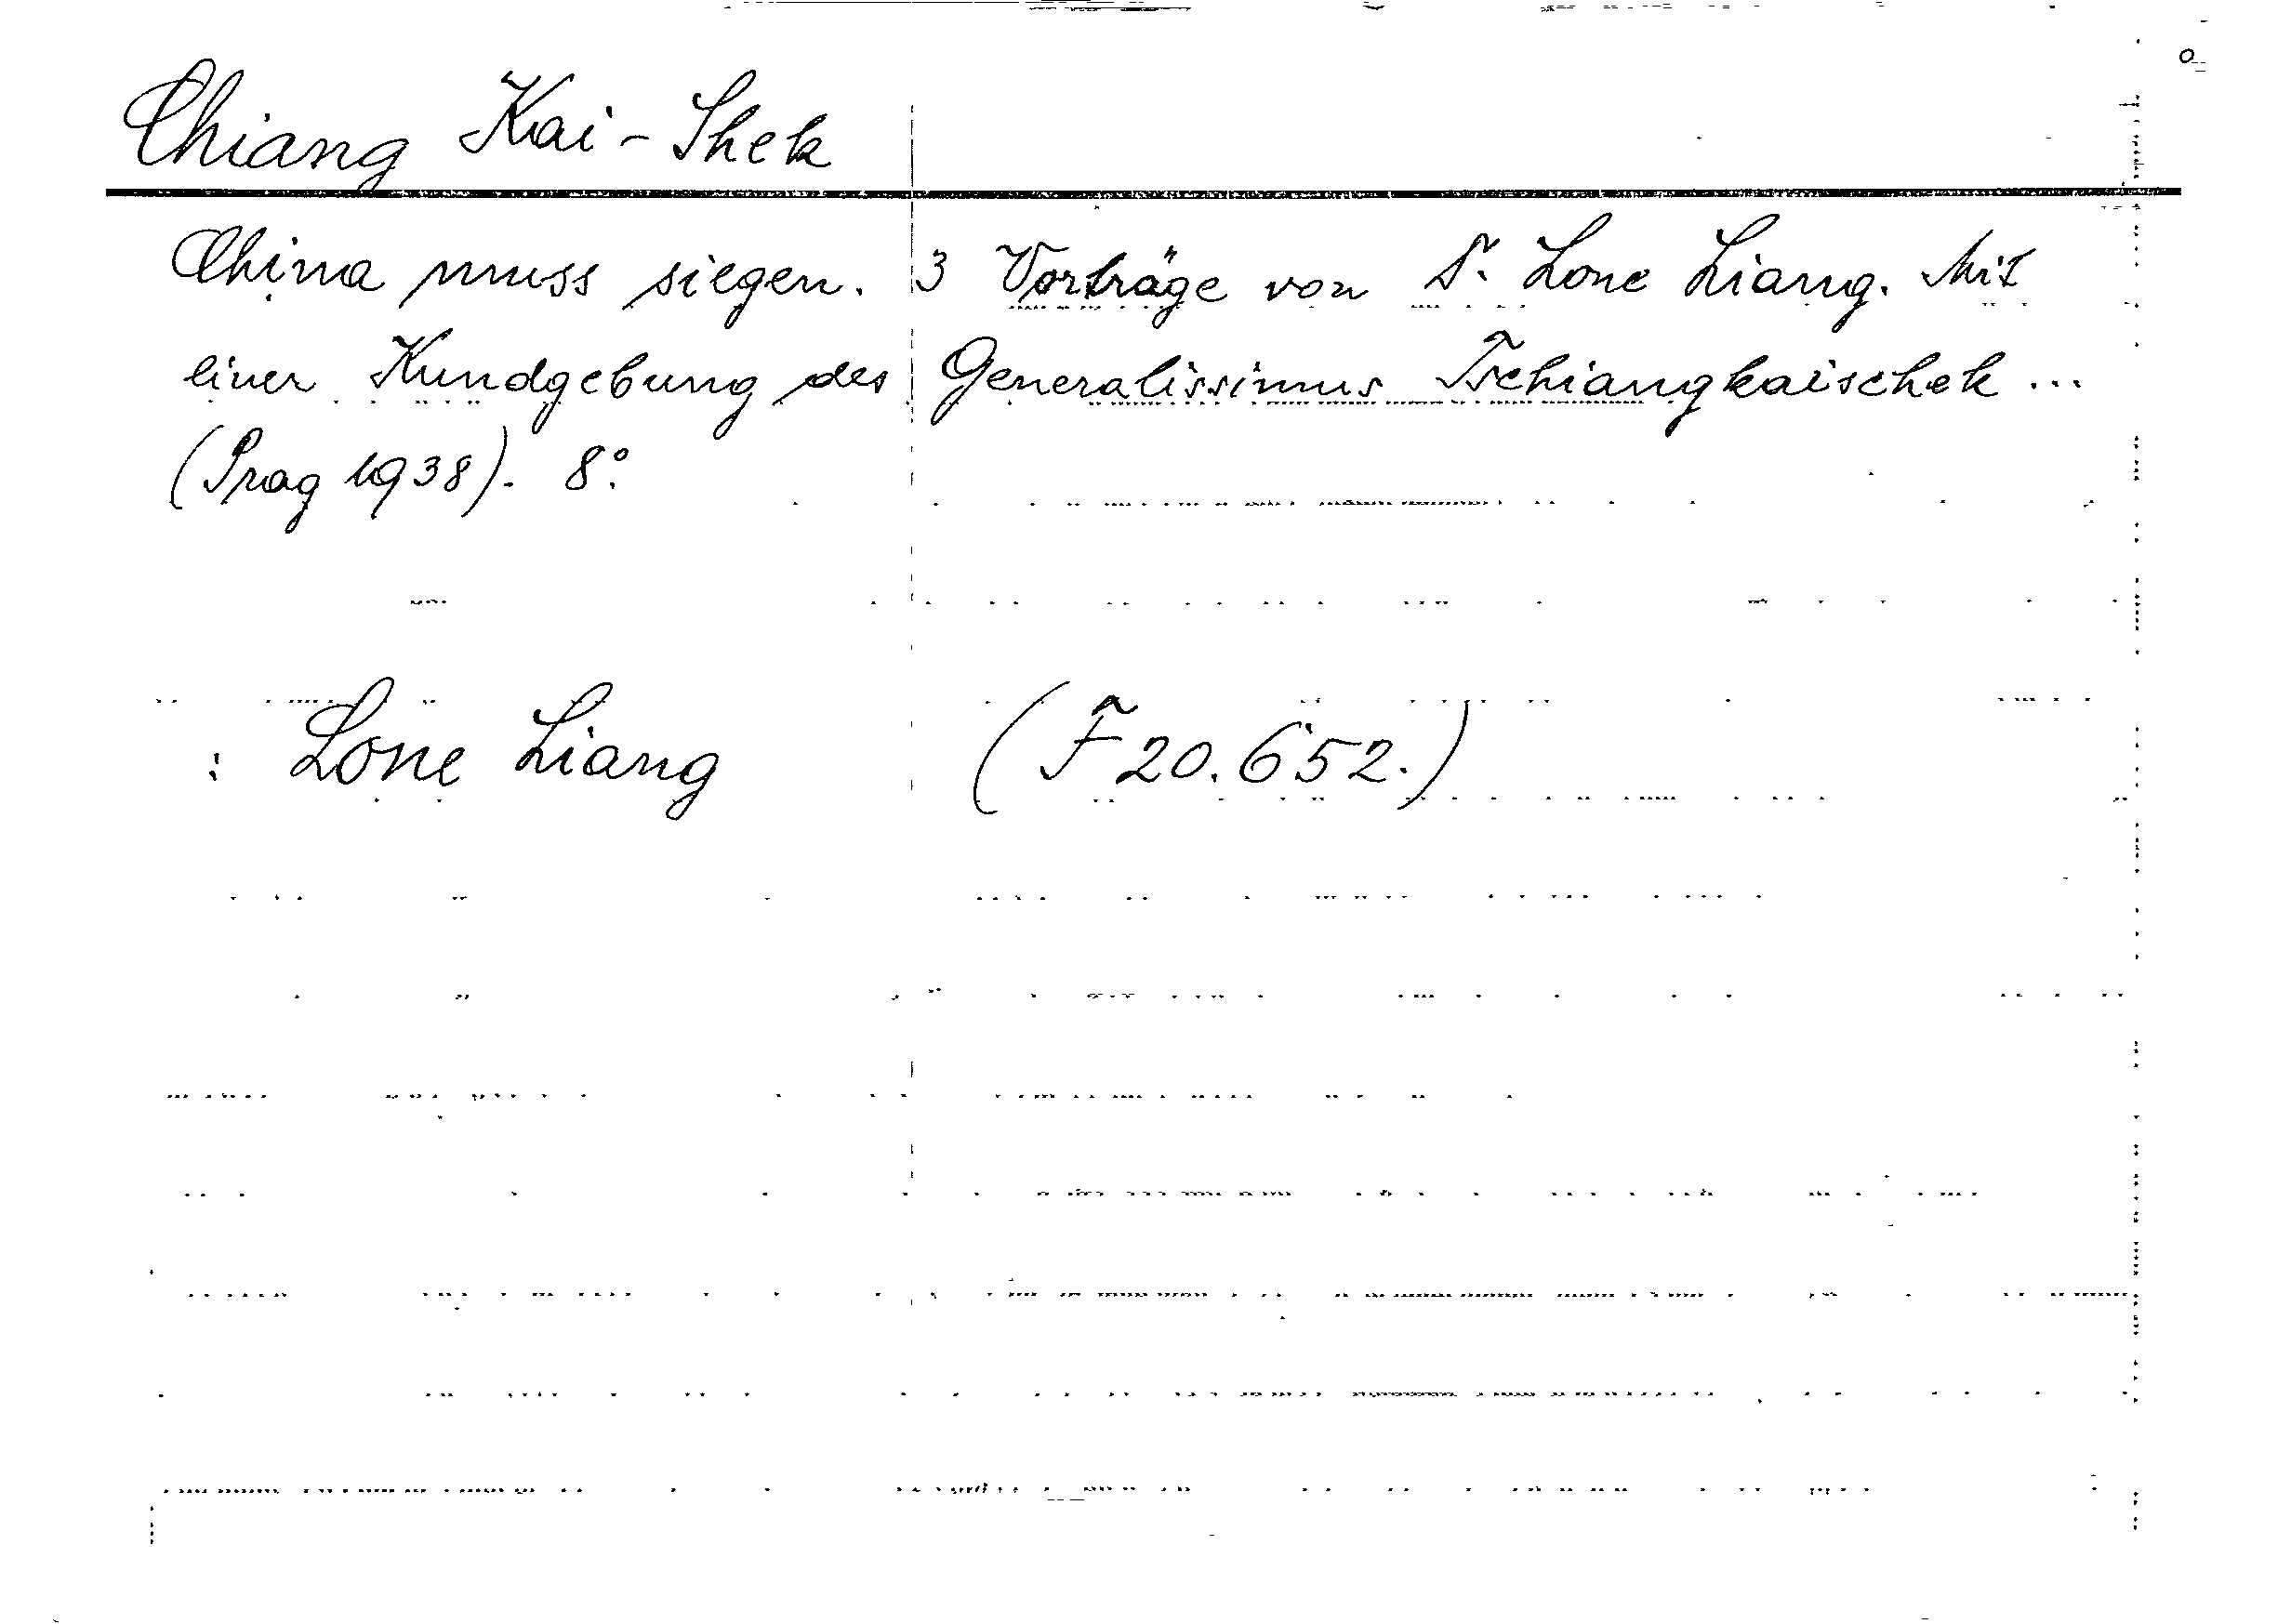 Chiang Kai-Shek
China muss siegen. 3 Vorträge von S. Lone Liang. Mit
einer Kundgebung des Generalissimus Tschiangkaischek ...
(Prag 1938). 8°.
: Lone Liang (F 20.652.)